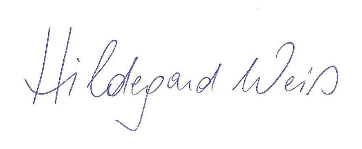 Hildegard Weiß